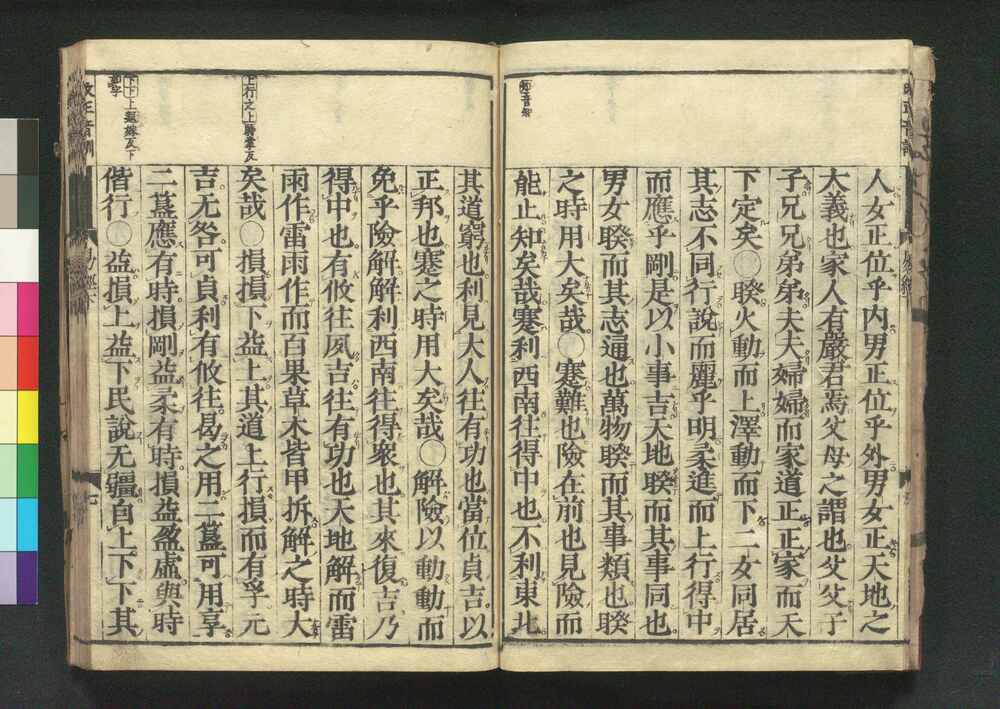 人女正位乎内男正位乎外男女正天地之
大義也家人有嚴君焉父母之謂也父父子
子兄兄弟弟夫夫婦婦而家道正正家而天
下定矣○睽火動而上澤動而下二女同居
其志不同行說而麗乎明柔進而上行得中
而應乎剛是以小事吉天地睽而其事同也
男女睽而其志通也萬物睽而其事類也睽
之時用大矣哉○蹇難也險在前也見險而
能止知矣哉蹇利西南往得中也不利東北
其道窮也利見大人往有功也當位貞吉以
正邦也蹇之時用大矣哉○解險以動動而
免乎險解解利西南往得衆也其來復吉乃
得中也有攸往夙吉往有功也天地解而雷
雨作雷雨作而百果草木皆甲拆解之時大
矣哉○損損下益上其道上行損而有孚元
吉无咎可貞利有攸往曷之用二簋可用享
二簋應有時損剛益柔有時損益盈虛與時
偕行○益損上益下民說无疆自上下下其
易經下
七